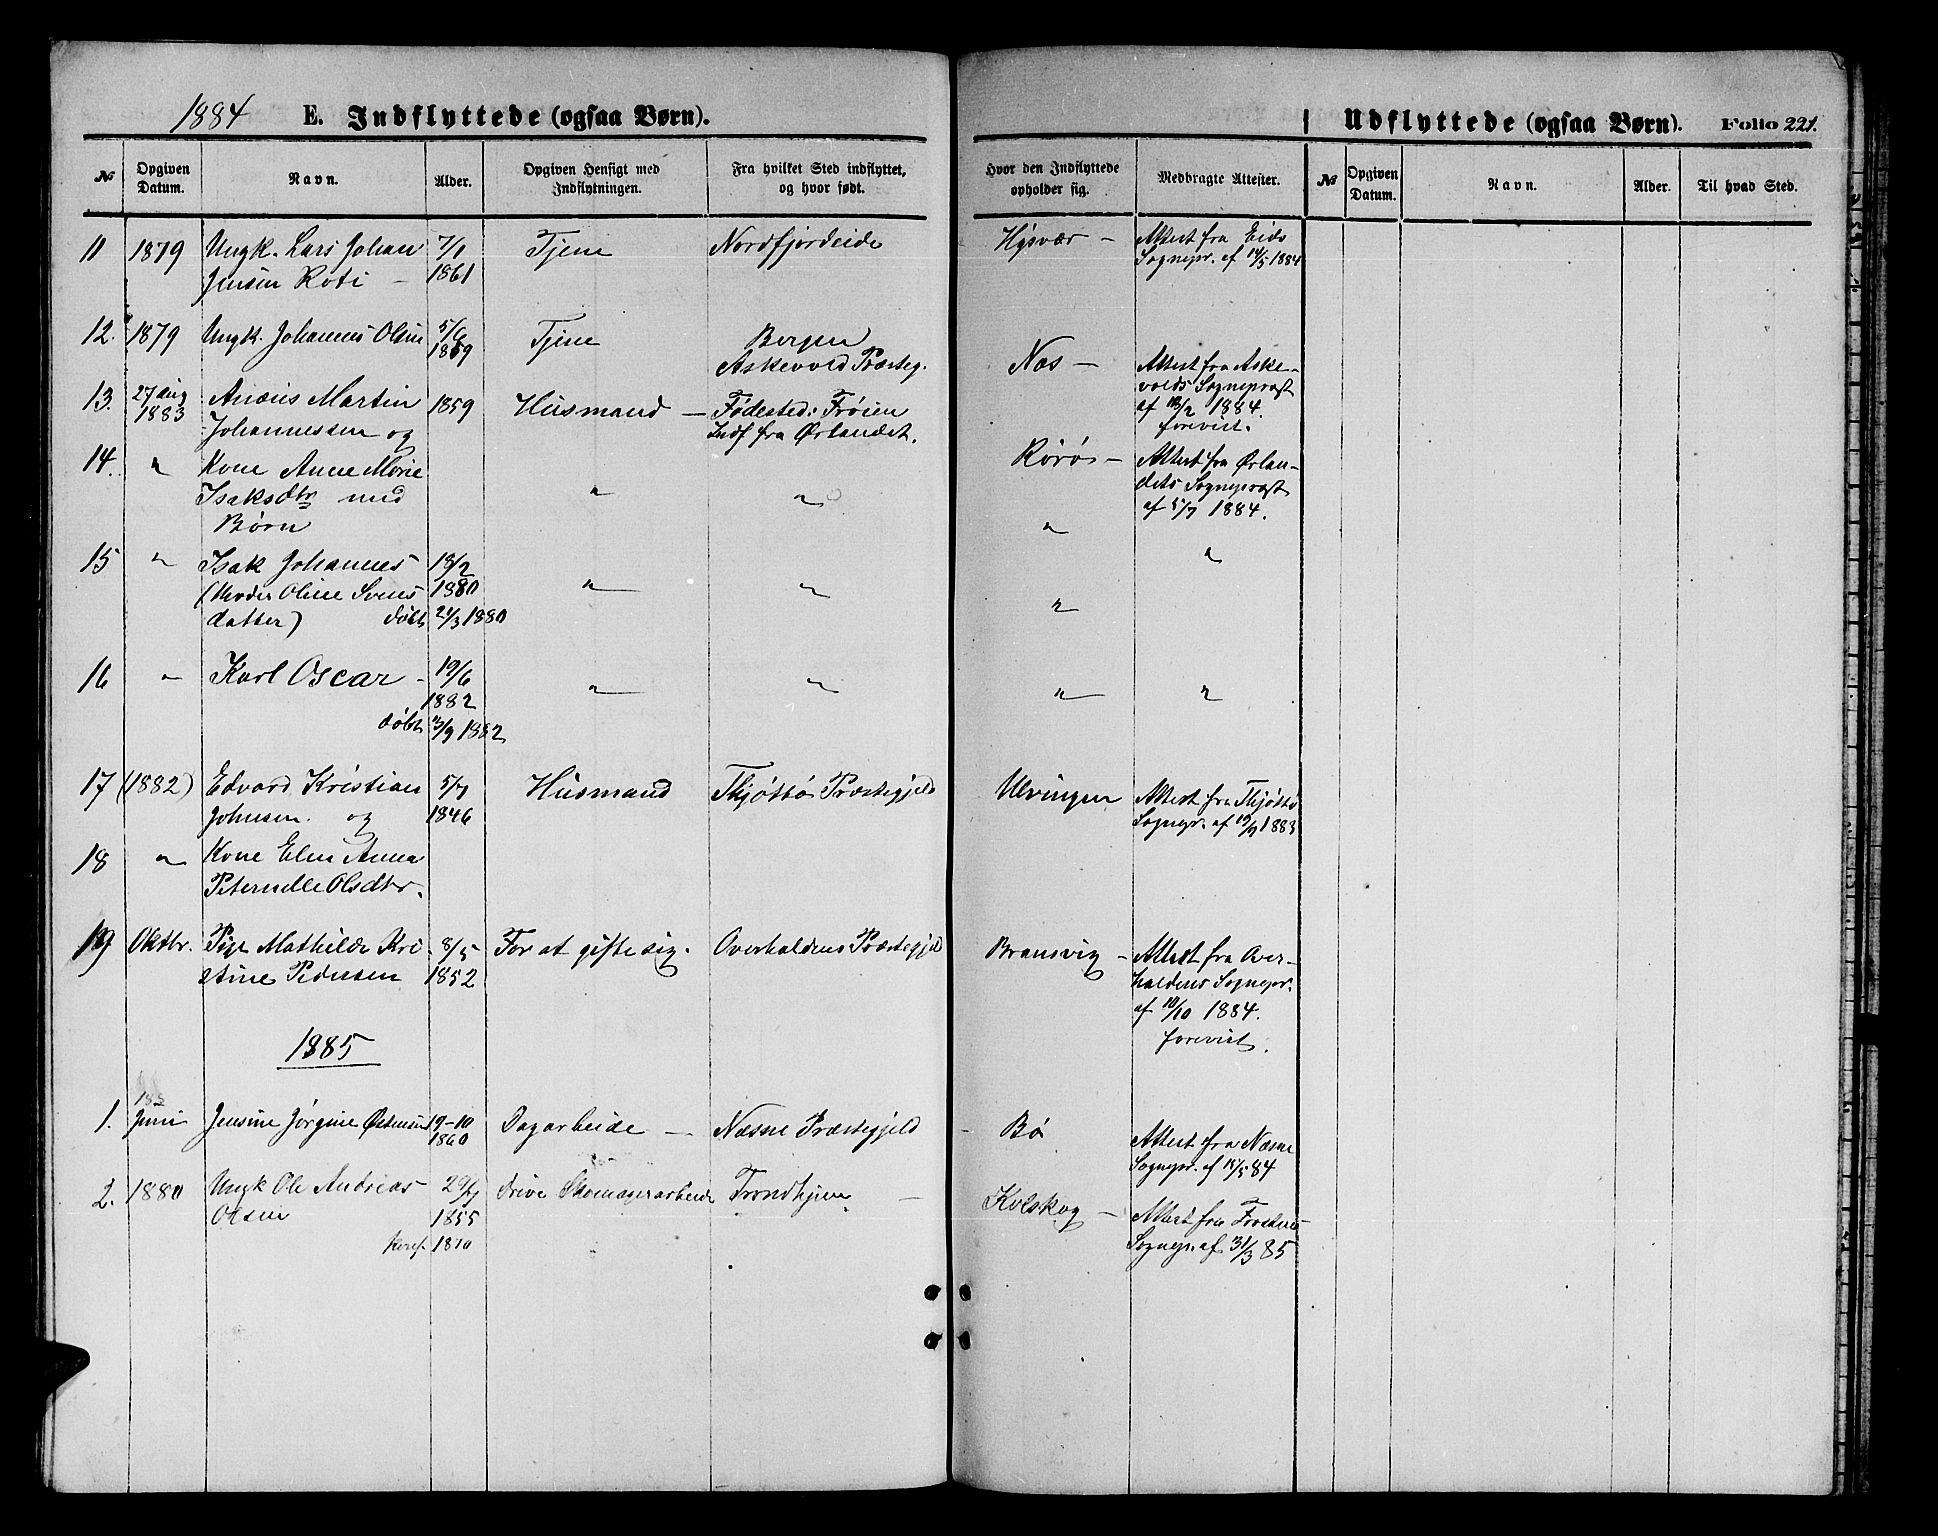 1884 E. Indflyttede (ogsaa Børn).
Udflyttede (ogsaa Børn). Folio 221.
№ Opgiven Datum. Navn. Alder. Opgiven Hensigt med Indflytningen. Fra hvilket Sted indflyttet, og hvor født. Hvor den Indflyttede opholder sig. Medbragte Attester. № Opgiven Datum. Navn. Alder. Til hvad Sted.
11 1879 Ungk. Lars Johan 7/1 Tjene Nordfjordeide Hysvær - Attest fra Eids
Jensen - 1861 Sognepr. af 14/5 1884
12. 1879 Ungk. Johannes Olsen 5/6 Tjene Bergen
1859 Askevold Præsteg. Næs - Attest fra Aske-
volds Sogneprest
af 18/2 1884.
forevist.
13. 27 Aug Anæus Martin 1859 Husmand - Fødested: Frøien
1883 Johannessen og Indf fra Ørlandet.
14. " Kone Anne Marie Rørøs - Attest fra Ørlan-
Isaksdtr med " " dets Sogneprest
Børn " af 5/7 1884.
15 " Isak Johannes 18/2 "
(Moder Oline Svens 1880 " "
datter) døbt 21/3 1880 "
16 " Karl Oscar - 19/6
1882 " " " "
døbt 13/9 1882
17 (1882) Edvard Kristian 5/7 Husmand Thjøttø Præstegjeld Ulvingen Attest fra Thjøttø
Johnsen. og 1846 Sognepr. af 19/9 1883
18 " Kone Elen Anna
Peternelle Olsdtr.
19 Oktbr. Pige Mathilde Kri 8/5 For at gifte sig. Overhaldens Præstegjeld Bransvig - Attest fra Over-
stine Pedersen 1852 haldens Sognepr.
af 10/10 1884.
forevist.
1885
1. Juni Jensine Jørgine Østensen 19-10 Dagarbeide - Næsne Præstegjeld - Bø Attest fra Næsne
1860 Sognepr. af 15/5 84
2. 1880 Ungk Ole Andreas 29/7 Drive Skomagerarbeide Trondhjem - Kolskog - Attest fra
Olsen 1855 Sognepr. af 31/3 85
1870